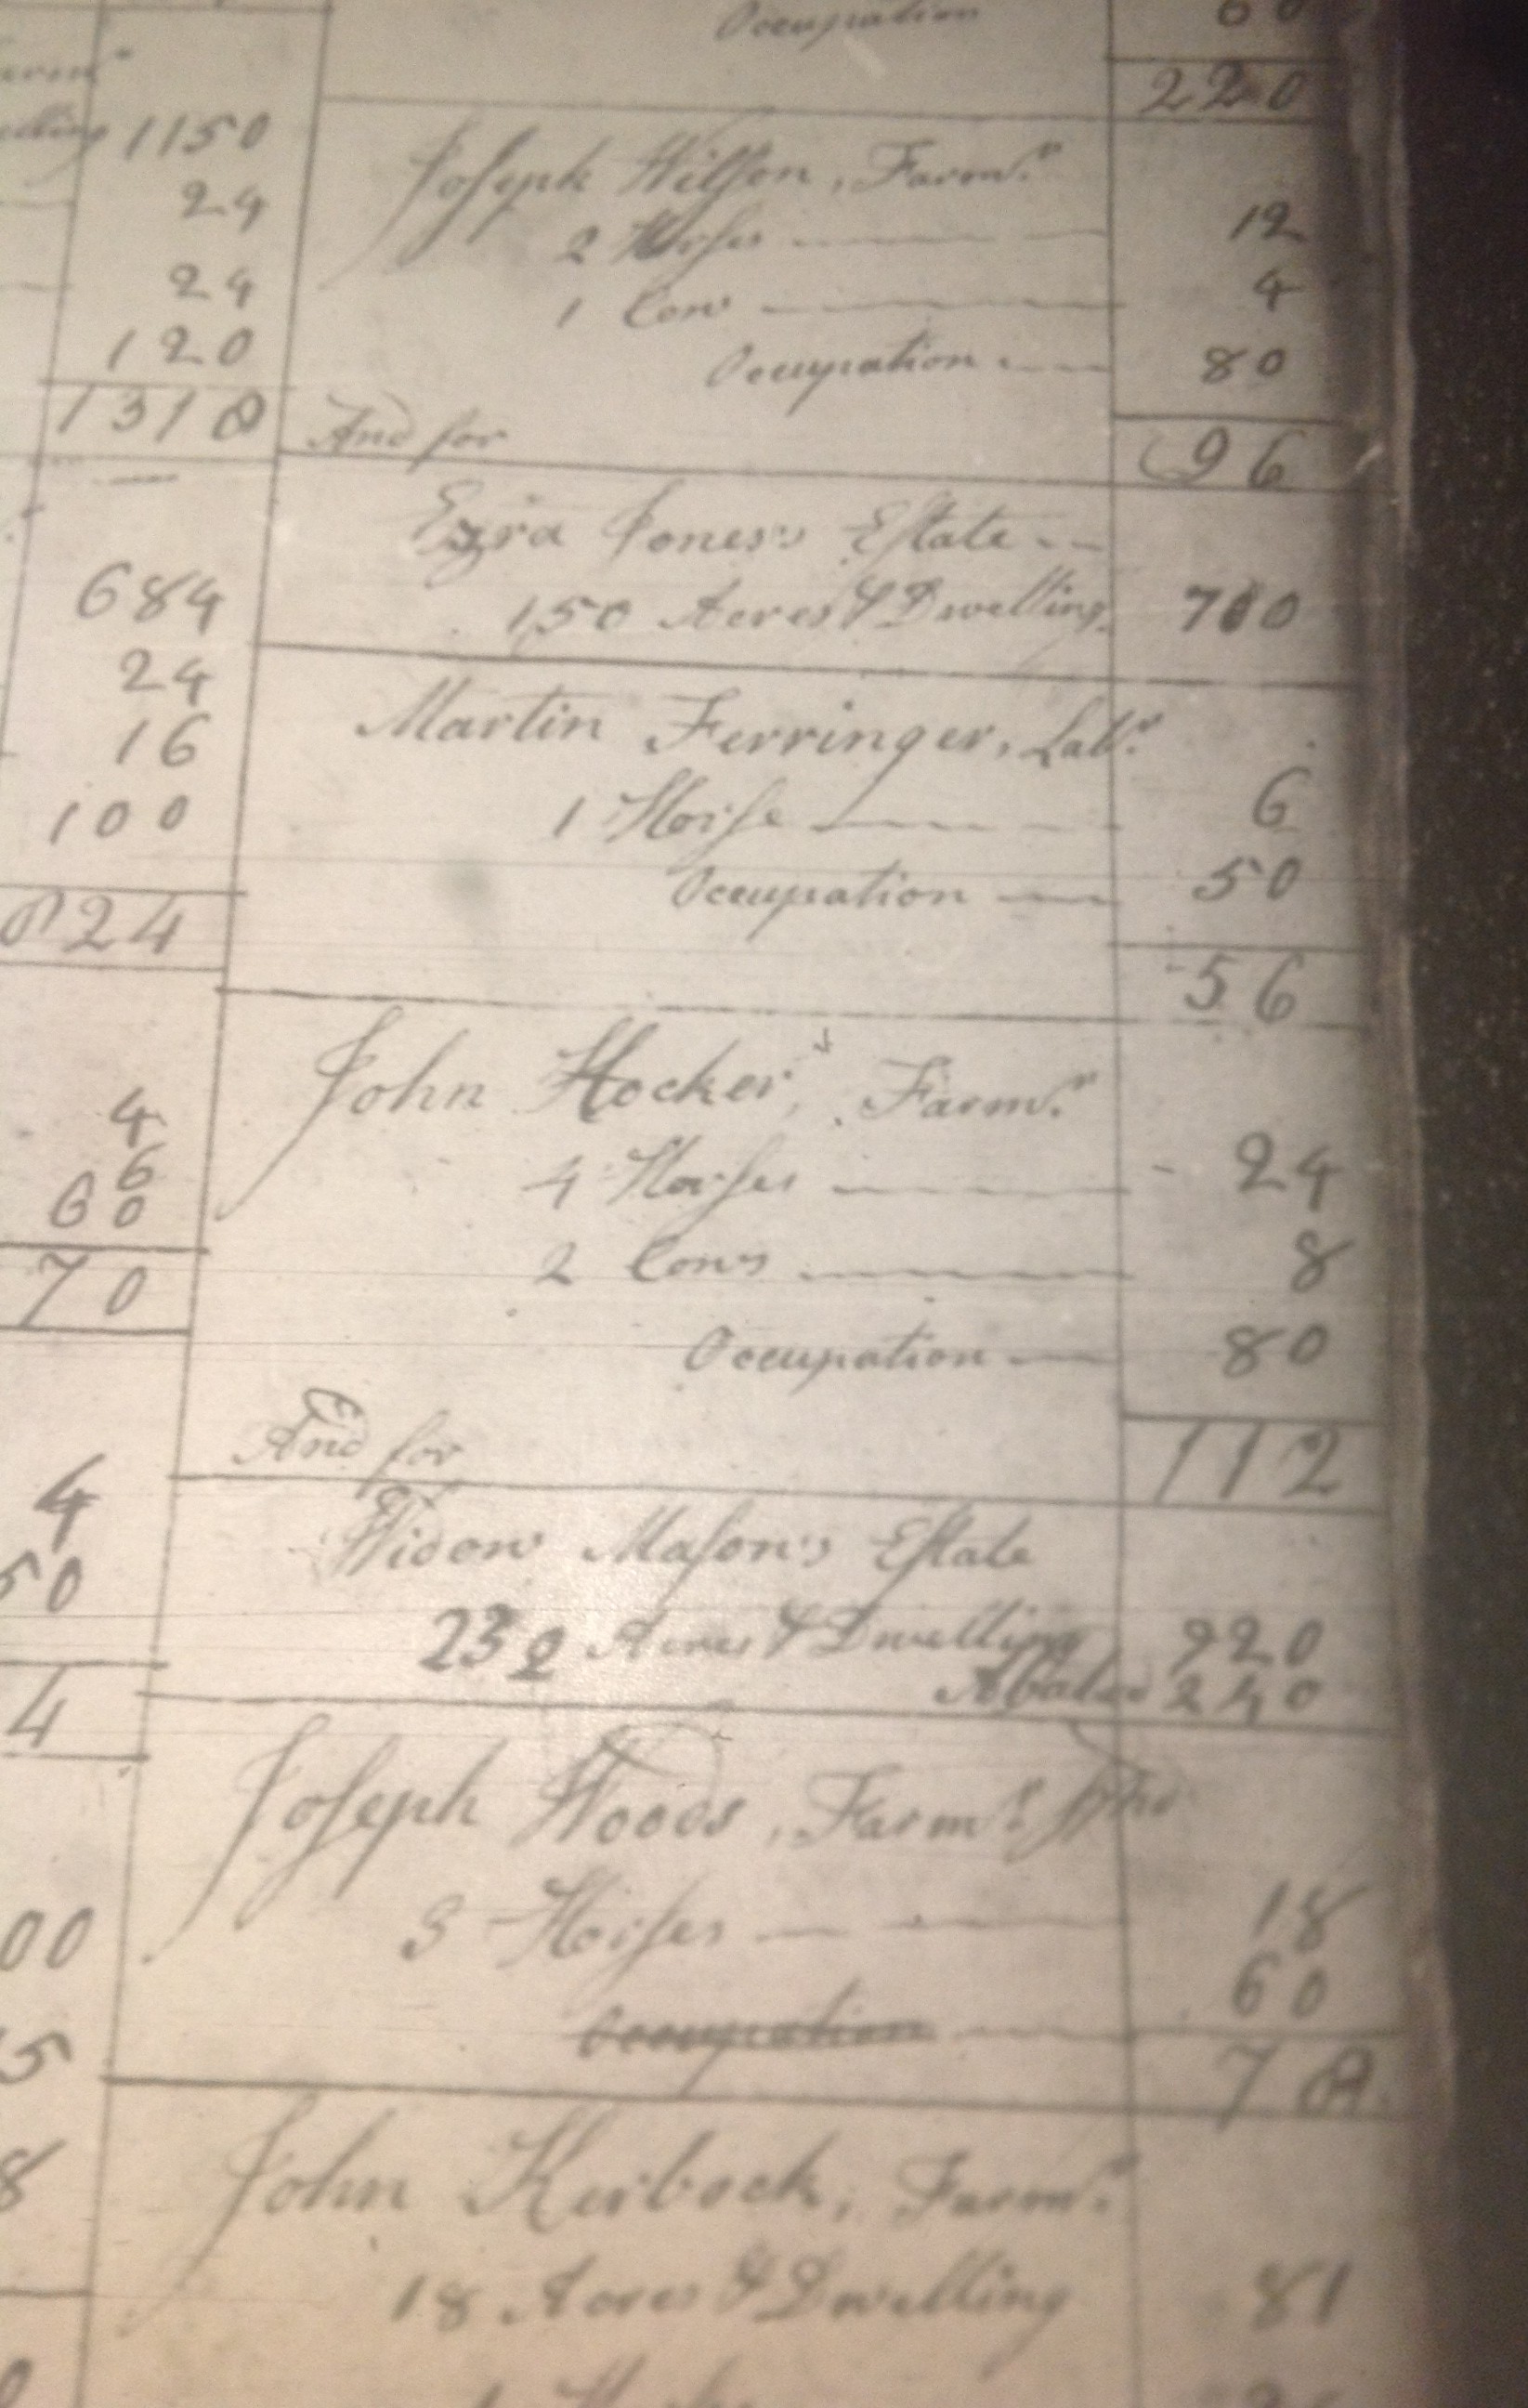 1150
24
24
120
1318
684
24
16
100
824
4
6
60
70
4
50
4
00
5
8
Occupation 60
220
Joseph Wilson, Farmr.
2 Horses 12
1 Cow 4
Occupation 80
And for 96
Ezra Jones's Estate
150 Acres & Dwelling 700
Martin Ferringer, Labr.
1 Horse 6
Occupation 50
56
John Hocker, Farmr.
4 Horses 24
2 Cows 8
Occupation 80
And for 112
Widow Mason's Estate
232 Acres & Dwelling 920
Abated 240
Joseph Woods, Farmr.
3 Horses 18
60
Occupation
78
John Kerbock, Farmr.
18 Acres & Dwelling 81